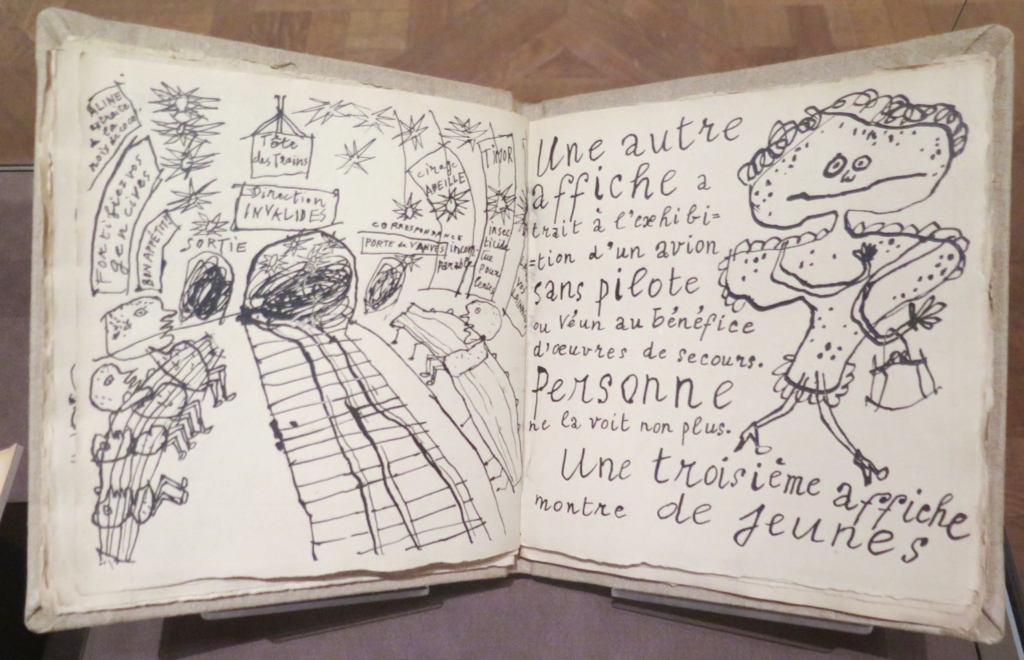 Tête
des Trains
Direction
INVALIDES
FORTIFIEZ VOS
gencives
BON APPETIT
SORTIE
CORRESPONDANCE
PORTE de VANVES
cirage
ABEILLE
TIMOR
insec
ticide
Une autre
affiche a
trait à l'exhibi=
tion d'un avion
sans pilote
ou Véun au bénéfice
d'œuvres de secours.
Personne
ne la voit non plus.
Une troisième affiche
montre de jeunes